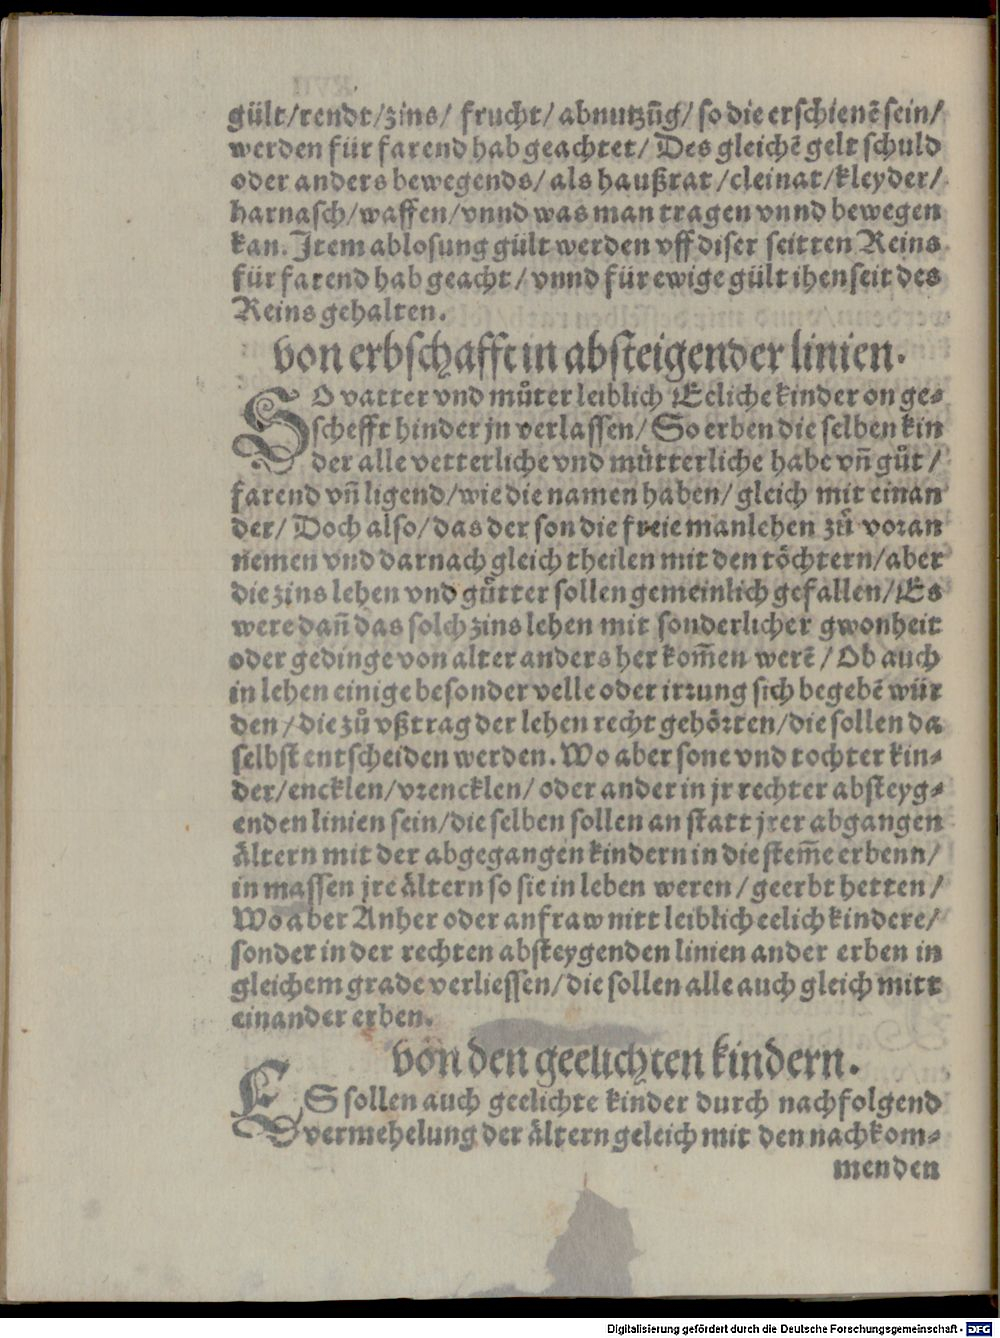 gült/rendt/zins/ frucht/ abnutzūg/ so die erschienē sein/
werden für farend hab geachtet/ Des gleichē gelt schuld
oder anders bewegends/ als haußrat/cleinat/kleyder/
harnasch/waffen/vnnd was man tragen vnnd bewegen
kan. Item ablosung gült werden vff diser seitten Reins
für farend hab geacht/ vnnd für ewige gült ihenseit des
Reins gehalten.
von erbschafft in absteigender linien.
SO vatter vnd můter leiblich Eeliche kinder on ge⸗
schefft hinder jn verlassen/ So erben die selben kin
der alle vetterliche vnd můtterliche habe vn̄ gůt/
farend vn̄ ligend/wie die namen haben/ gleich mit einan
der/ Doch also/ das der son die freie manlehen zů voran
nemen vnd darnach gleich theilen mit den töchtern/aber
die zins lehen vnd gůtter sollen gemeinlich gefallen/ Es
were dan̄ das solch zins lehen mit sonderlicher gwonheit
oder gedinge von alter anders her kom̄en werē/ Ob auch
in lehen einige besonder velle oder irrung sich begebē wür
den/ die zů vßtrag der lehen recht gehörten/die sollen da
selbst entscheiden werden. Wo aber sone vnd tochter kin⸗
der/encklen/vrencklen/ oder ander in jr rechter absteyg⸗
enden linien sein/die selben sollen an statt jrer abgangen
ältern mit der abgegangen kindern in die stem̄e erbenn/
in massen jre ältern so sie in leben weren/geerbt hetten/
Wo aber Anher oder anfraw nitt leiblich eelich kindere/
sonder in der rechten absteygenden linien ander erben in
gleichem grade verliessen/die sollen alle auch gleich mitt
einander erben.
von den geelichten kindern.
ES sollen auch geelichte kinder durch nachfolgend
vermehelung der ältern geleich mit den nachkom⸗
menden
Digitalisierung gefördert durch die Deutsche Forschungsgemeinschaft - DFG